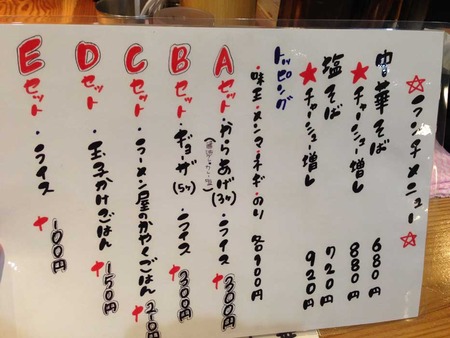 ☆ランチメニュー☆
中華そば 680円
★チャーシュー増し 880円
塩そば 720円
★チャーシュー増し 920円
トッピング
・味玉・メンマ・ネギ・のり 各100円
Aセット・からあげ(3ヶ)・ライス +300円
Bセット・ギョーザ(5ヶ)・ライス +300円
Cセット・ラーメン屋のかやくごはん +210円
Dセット・玉子かけごはん +150円
Eセット・ライス +100円